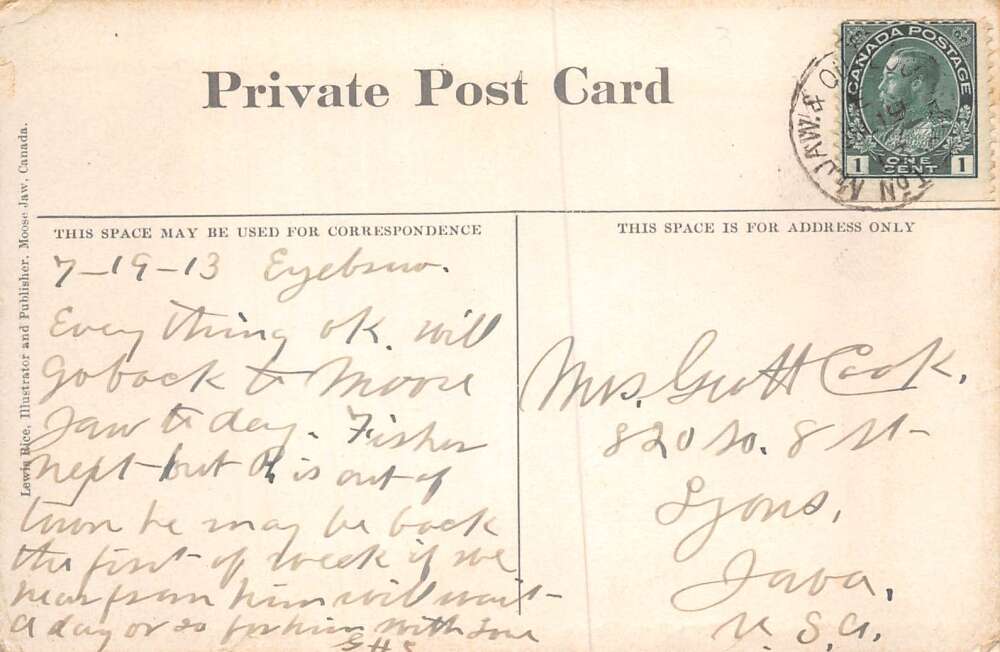 Private Post Card
CANADA POSTAGE
1 ONE CENT 1
M.JAW
Lewis Rice, Illustrator and Publisher, Moose Jaw, Canada.
THIS SPACE MAY BE USED FOR CORRESPONDENCE
7-19-13 Eyebrow.
Every thing ok. will
go back to Moose
Jaw to day. Fisher
next but is out of
town he may be back
the first of week if we
hear from him will wait
a day or so for him with love
THIS SPACE IS FOR ADDRESS ONLY
Mrs. Scott Cook,
820 So. 8 St-
Lyons,
Iowa,
U.S.A.